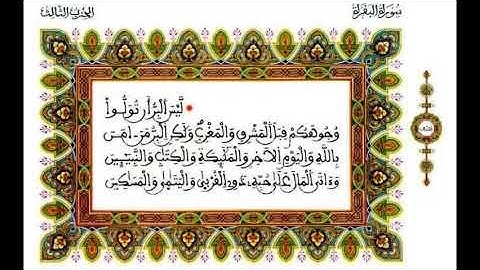 سورة البقرة
الحزب الثالث
لَّيْسَ اَلْبِرُّ أَن تُوَلُّواْ
وُجُوهَكُمْ قِبَلَ اَلْمَشْرِقِ وَالْمَغْرِبِ وَلَٰكِنِ اِلْبِرُّ مَنَ اٰمَنَ
بِاللَّهِ وَالْيَوْمِ اِلَاخِرِ وَالْمَلَٰٓئِكَةِ وَالْكِتَٰبِ وَالنَّبِيٓـِٕينَ
وَءَاتَى اَلْمَالَ عَلَىٰ حُبِّهِۦ ذَوِے اِلْقُرْبَىٰ وَالْيَتَٰمَىٰ وَالْمَسَٰكِينَ